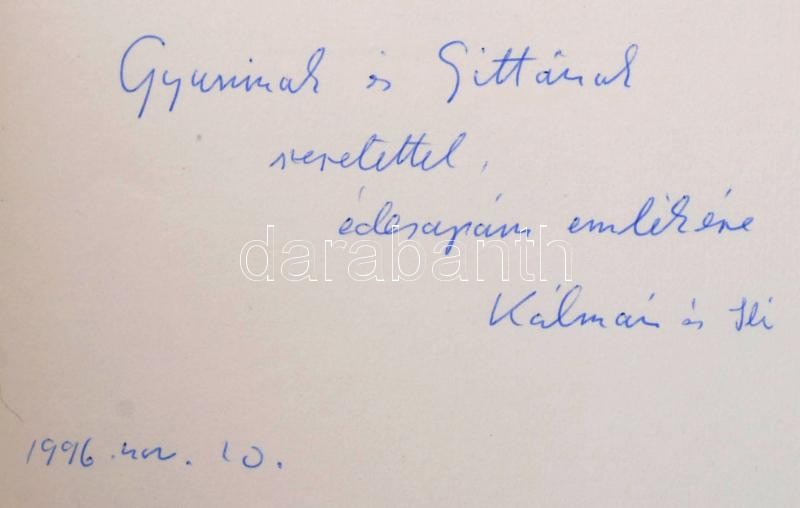 Gyurinak és Gittának
szeretettel,
édesapám emlékére
darabanth
Kálmán és Ili
1996. nov. 10.